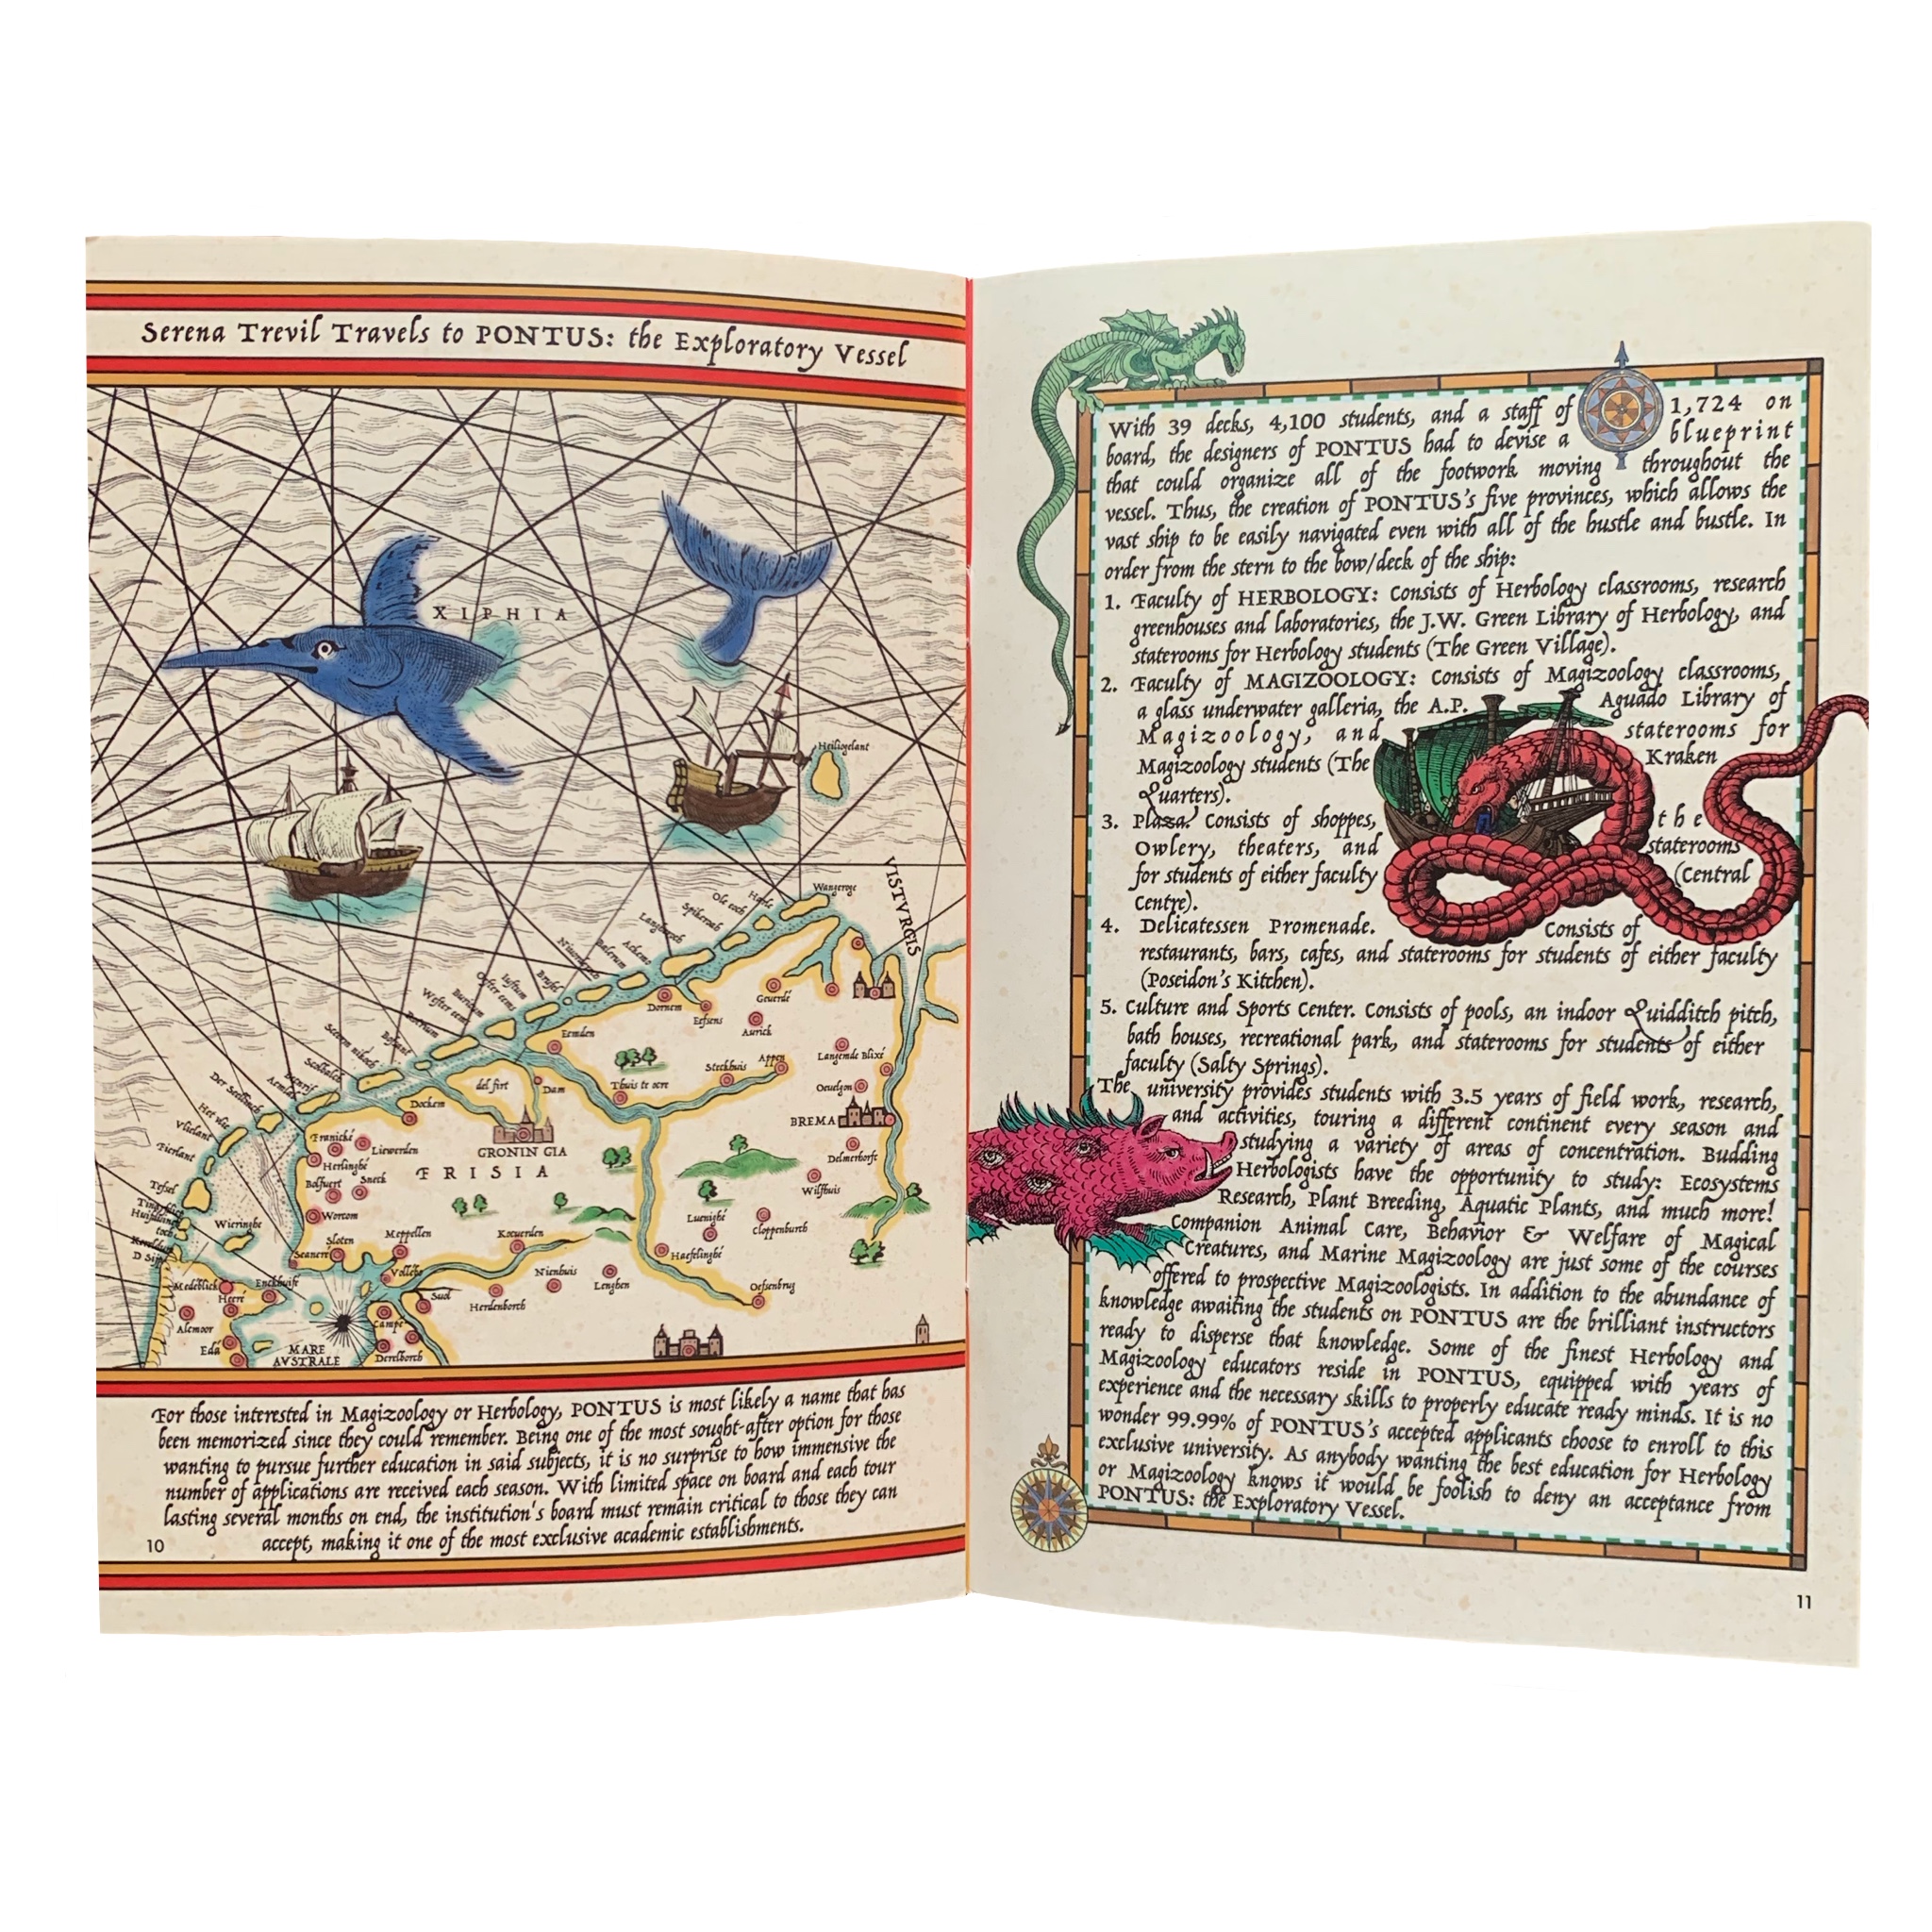 Serena Trevil Travels to PONTUS: the Exploratory Vessel
XIPHIA
Heiligelant
VISTVRGIS
Wangeroge
Harle
Ole ooch
Spikeroch
Langeroch
Acheme
Balerum
Brusel
Iustum
Oster eems
Burium
Wester eems
Borrium
Bosant
Scoeren nikoch
Scolbalch
Der Seellinch
Het vlie
Vlielant
Fierlant
Tessel
Wieringhe
Dornem
Eessens
Geuerde
Aurick
Eemden
Langemde Blixé
Oeuelgon
BREMA
Delmerhorst
Wilshuis
Cloppenburch
Lueníghé
Haeselinghé
Oessenbrug
Appen
Steckhuis
Thuis te ocre
del firt
Dam
Dockem
GRONIN GIA
FRISIA
Franické
Liewerden
Herlinghé
Bolsuert
Sneck
Worcom
Sloten
Seanert
Meppellen
Kocuerden
Nienhuis
Lenghen
Herdenborch
Vollého
Suol
Campe
Derelborch
Medeblick
Enckhuise
Heeré
Alemoor
Edá
MARE
AVSTRALE
For those interested in Magizoology or Herbology, PONTUS is most likely a name that has
been memorized since they could remember. Being one of the most sought-after option for those
wanting to pursue further education in said subjects, it is no surprise to how immensive the
number of applications are received each season. With limited space on board and each tour
lasting several months on end, the institution's board must remain critical to those they can
accept, making it one of the most exclusive academic establishments.
10
With 39 decks, 4,100 students, and a staff of 1,724 on
board, the designers of PONTUS had to devise a blueprint
that could organize all of the footwork moving throughout the
vessel. Thus, the creation of PONTUS's five provinces, which allows the
vast ship to be easily navigated even with all of the hustle and bustle. In
order from the stern to the bow/deck of the ship:
1. Faculty of HERBOLOGY: Consists of Herbology classrooms, research
greenhouses and laboratories, the J.W. Green Library of Herbology, and
staterooms for Herbology students (The Green Village).
2. Faculty of MAGIZOOLOGY: Consists of Magizoology classrooms,
a glass underwater galleria, the A.P. Aguado Library of
Magizoology, and staterooms for
Magizoology students (The Kraken
Quarters).
3. Plaza. Consists of shoppes, the
Owlery, theaters, and staterooms
for students of either faculty (Central
Centre).
4. Delicatessen Promenade. Consists of
restaurants, bars, cafes, and staterooms for students of either faculty
(Poseidon's Kitchen).
5. Culture and Sports Center. Consists of pools, an indoor Quidditch pitch,
bath houses, recreational park, and staterooms for students of either
faculty (Salty Springs).
The university provides students with 3.5 years of field work, research,
and activities, touring a different continent every season and
studying a variety of areas of concentration. Budding
Herbologists have the opportunity to study: Ecosystems
Research, Plant Breeding, Aquatic Plants, and much more!
Companion Animal Care, Behavior & Welfare of Magical
Creatures, and Marine Magizoology are just some of the courses
offered to prospective Magizoologists. In addition to the abundance of
knowledge awaiting the students on PONTUS are the brilliant instructors
ready to disperse that knowledge. Some of the finest Herbology and
Magizoology educators reside in PONTUS, equipped with years of
experience and the necessary skills to properly educate ready minds. It is no
wonder 99.99% of PONTUS's accepted applicants choose to enroll to this
exclusive university. As anybody wanting the best education for Herbology
or Magizoology knows it would be foolish to deny an acceptance from
PONTUS: the Exploratory Vessel.
11